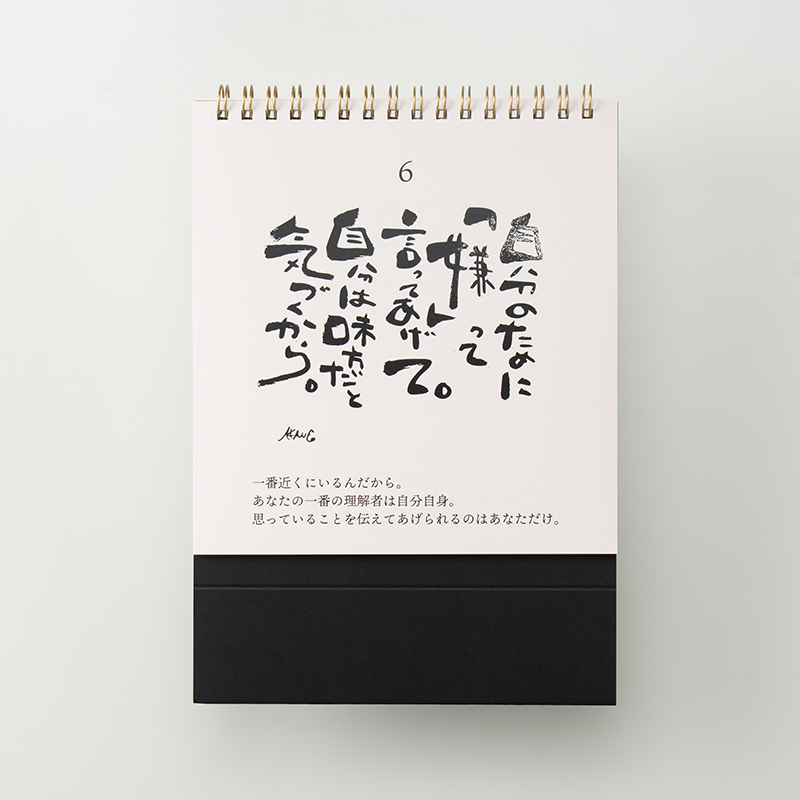 6
自分のために
「嫌」って
言ってあげて。
自分は味方だと
気づくから。
一番近くにいるんだから。
あなたの一番の理解者は自分自身。
思っていることを伝えてあげられるのはあなただけ。